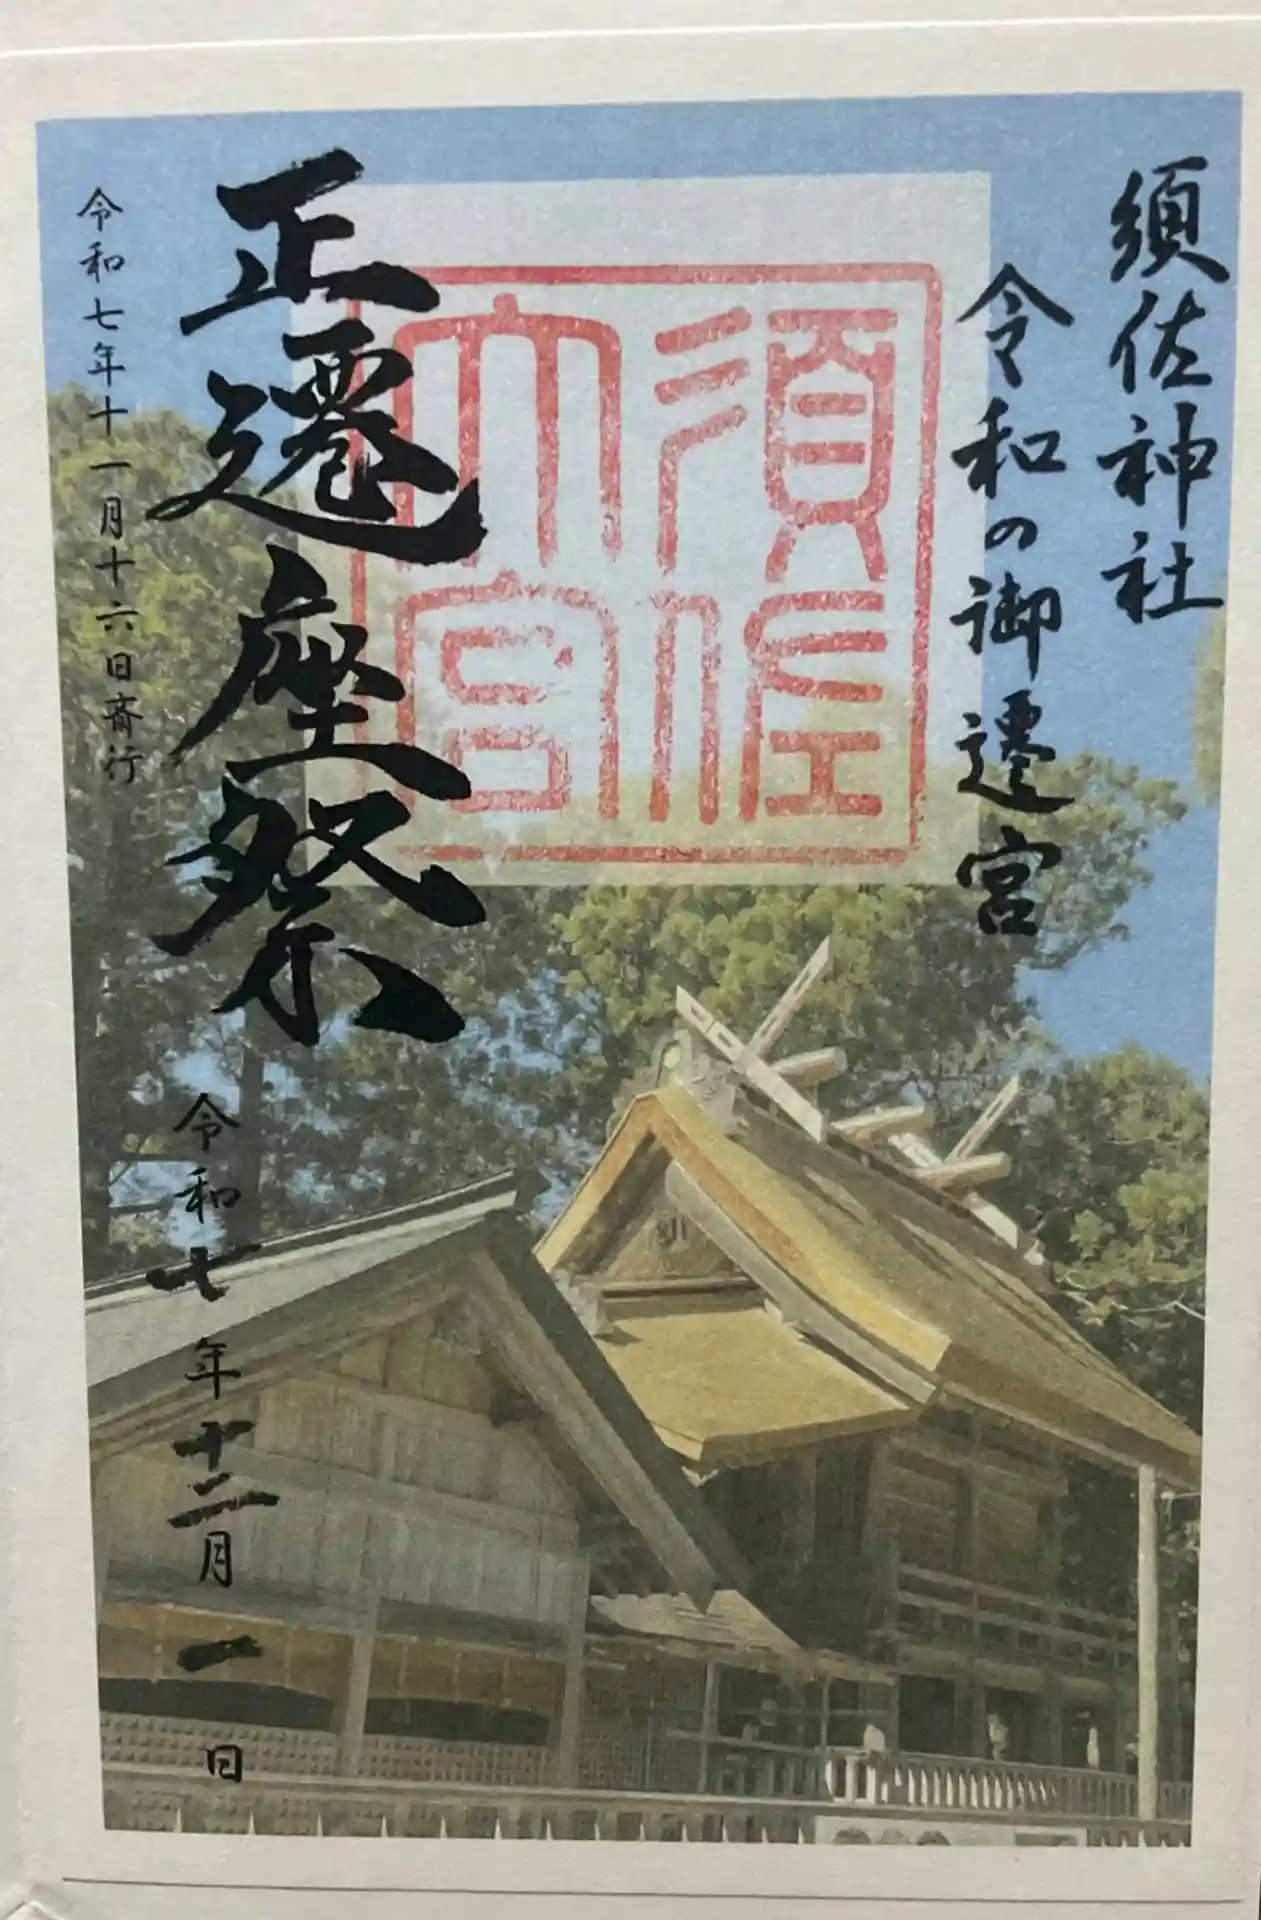 須佐神社
令和の御遷宮
須佐大宮
正遷座祭
令和七年十一月十六日斎行
令和七年十二月一日